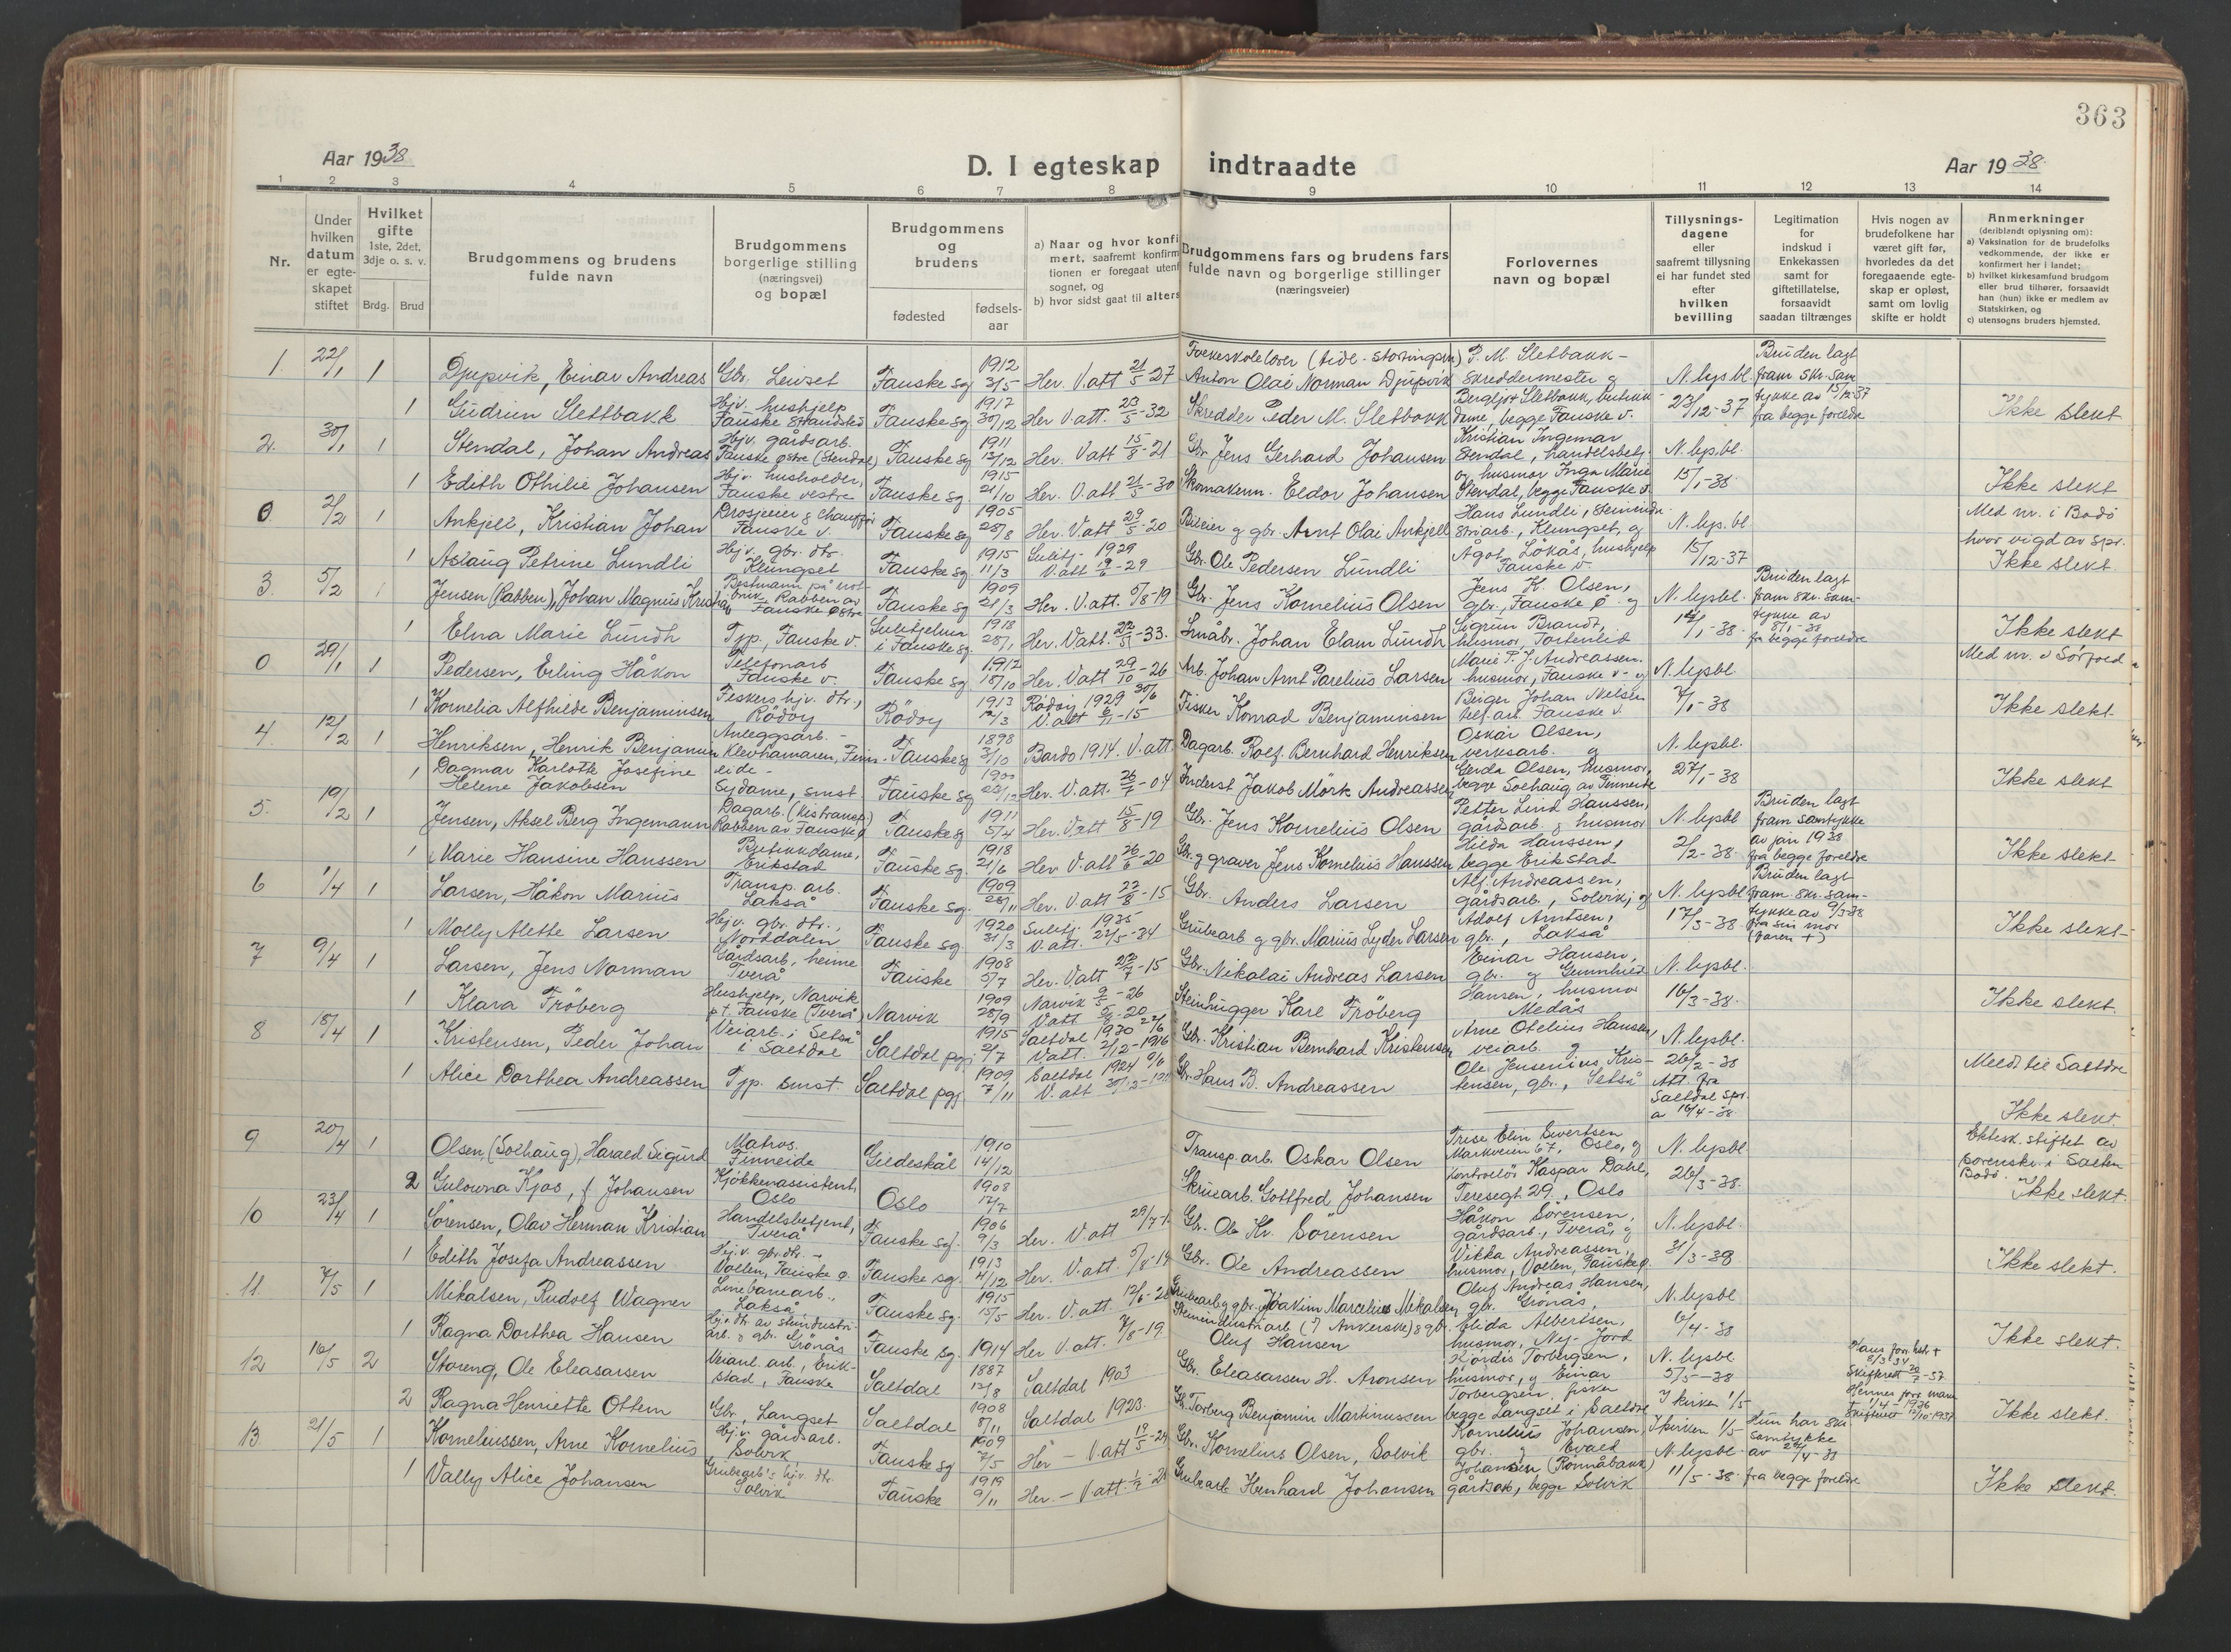 363
Aar 1938
D. I egteskap indtraadte
Aar 1938.
1 2 3 4 5 6 7 8 9 10 11 12 13 14
Nr.
Under hvilken datum er egteskapet stiftet
Hvilket gifte 1ste, 2det, 3dje o. s. v.
Brdg. Brud
Brudgommens og brudens fulde navn
Brudgommens borgerlige stilling (næringsvei) og bopæl
Brudgommens og brudens
fødested
fødsels-aar
a) Naar og hvor konfi
mert, saafremt konfirm
tionen er foregaat utenf
sognet, og
b) hvor sidst gaat til alters
Brudgommens fars og brudens fars fulde navn og borgerlige stillinger (næringsveier)
Forlovernes navn og bopæl
Tillysnings-dagene eller saafremt tillysning ei har fundet sted efter hvilken bevilling
Legitimation for indskud i Enkekassen samt for giftetillatelse, forsaavidt saadan tiltrænges
Hvis nogen av brudefolkene har været gift før, hvorledes da det foregaaende egteskap er opløst, samt om lovlig skifte er holdt
Anmerkninger (deriblandt oplysning om):
a) Vaksination for de brudefolks vedkommende, der ikke er konfirmert her i landet;
b) hvilket kirkesamfund brudgom eller brud tilhører, forsaavidt han (hun) ikke er medlem av Statskirken, og
c) utensogns bruders hjemsted.
1. 22/1 1 Djupvik, Einar Andreas Gbr. Leivset Fauske sg 1912 3/5 Her. V. att 21/5-27 Anton Olai Norman Djupvik P. M. Slettbakk - skreddermester g N. lysbl. Bruden lagt fram skr. sam
1 Gudrun Slettbakk Hjv. hushjelp Fauske strandsted Fauske sg. 1917 30/12 Her V. att. 23/5-32 Skredder Peder M. Slettbakk Bergljot Slettbakk, butikkdame, begge Fauske v. 23/12-37 tykke av 15/12-37 fra begge foreldre Ikke slekt
2. 30/1 1 Stendal, Johan Andreas Hjv. gårdsarb. Fauske østre (Stendal) Fauske sg 1911 13/12 Her. V. att 15/8-21 Gbr Jens Gerhard Johansen Kristian Ingemar Stendal, handelsbetj. N. lysbl.
1 Edith Othilie Johansen Hjv. husholder, Fauske vestre Fauske sg. 1915 21/10 Her. V. att 21/5-30 Skomakerm. Eldor Johansen og husmor Inga Marie Stendal, begge Fauske v. 15/1-38 Ikke slekt
0 2/2 1 Ankjell, Kristian Johan Drosjeeier & chauffør Fauske v. Fauske sg 1905 28/8 Her. V. att 29/5-20 Bileier g gbr. Arnt Olai Ankjell Hans Lundli, steinindustriarb., Klungset, g N. lys. bl. Med nr. i Bodö
1 Aslaug Petrine Lundli Hjv. gbr. dtr. Klungset Fauske sg 1915 11/3 Sulitj. 1929 V. att 19/6-29 Gbr. Ole Pedersen Lundli Ågot Løkås, hushjelp Fauske v. 15/12-37 hvor vigd av spr. Ikke slekt
3. 5/2 1 Jensen (Rabben), Johan Magnus Kristian Rabben av Fauske østre Fauske sg 1909 21/3 Her. V. att. 5/8-19 Gbr. Jens Kornelius Olsen Jens K. Olsen, gbr., Fauske ø. g N. lysbl. Bruden lagt fram skr. sam-
1 Elna Marie Lundh Tjp., Fauske v. Sulitjelma i Fauske sg. 1918 28/1 Her. V. att. -33. Småbr. Johan Elam Lundh Sigrun Brandt, husmor, 14/1-38. tykke av 8/1-38 fr begge foreldre Ikke slekt
0 29/1 1 Pedersen, Erling Håkon Telefonarb Fauske v. Fauske sg 1912 18/10 Her. V. att 29/10-26 Arb. Johan Arnt Parelius Larsen Marie P. J. Andreassen. husmor, Fauske v. g N. lysbl. Med nr. i Sørfold
1 Kornelia Alfhilde Benjaminsen Fiskers hjv. dtr., Rödöy Rödöy 1913 12/3 Rödöy 1929 30/6 V. att 6/11-15 Fisker Konrad Benjaminsen Beiger Johan Nelsen tel. arb. Fauske v. 7/1-38 Ikke slekt
4. 12/2 1 Henriksen, Henrik Benjamin Anleggsarb. - Klevhamaren, Finneide - Fauske sg 1898 3/10 Bardo 1914. V. att. Dagarb. Rolf Bernhard Henriksen Oskar Olsen, verksarb. g N. lysbl.
1 Dagmar Karlotte Josefine Helene Jakobsen Sydame, smst Fauske sg 1900 22/12 Her. V. att. 26/7-04 Inderst Jakob Mörk Andreassen Gerda Olsen, husmor, begge Solhaug av Finneide 27/1-38 Ikke slekt
5. 19/2 1 Jensen, Aksel Berg Ingemann Dagarb. (kistransp.) Rabben av Fauske ø Fauske sg 1911 5/4 Her. V. att 15/8-19 Gbr. Jens Kornelius Olsen Petter Lind Hanssen, gårdsarb. g husmor N. lysbl Bruden lagt fram samtykke
1 Marie Hansine Hanssen Butikkdame, Erikstad Fauske sg. 1918 21/6 Her V. att 26/6-20 Gbr. g graver Jens Kornelius Hanssen Hilda Hanssen, begge Erikstad 2/2-38. av jan 1938 fra begge foreldre Ikke slekt
6 1/4 1 Larsen, Håkon Marius Transp. arb. Lakså Fauske sg. 1909 28/11 Her. V. att 22/8-15 Gbr. Anders Larsen Alf. Andreassen, gårdsarb., Solvik, g N. lysbl Bruden lagt fram skr. sam-
1 Molly Alette Larsen Hjv. gbr. dtr., Norddalen Fauske sg. 1920 31/3 Sulitj. 1935 V. att. 22/5-34 Grubearb g gbr. Marius Lyder Larsen Adolf Arntsen, gbr., Lakså 17/3-38 tykke av 9/3-38 fra sin mor (faren +) Ikke slekt-
7 9/4 1 Larsen, Jens Norman Gårdsarb., heime Tverå Fauske 1908 5/7 Her. V. att 22/7-15 Gbr. Nikolai Andreas Larsen Einar Hansen, gbr. g Gunnhild N. lysbl.
1 Klara Fröberg Hushjelp, Narvik p.t. Fauske (Tverå) Narvik 1909 28/9 Narvik 9/5-26 V. att 5/8-20 Steinhugger Karl Fröberg Hansen, husmor Medås 16/3-38. Ikke slekt.
8 18/4 1 Kristensen, Peder Johan Veiarb. i Setså i Saltdal Saltdal pgj 1915 2/7 Saltdal 1930 22/6 V. att. 2/12-1916 Gbr. Kristian Bernhard Kristensen Arne Otelius Hansen veiarb. g N. lysbl.
1 Alice Dorthea Andreassen Tjp. smst. Saltdal pgj 1909 7/11 Saltdal 1924 V. att Gbr. Hans B. Andreassen Ole Jensenius Kristensen, gbr., Setså 26/2-38 Att. fra Saltdal spr. a 16/4-38. Meldt til Saltdal Ikke slekt.
9 20/4 1 Olsen, (Solhaug), Harald Sigurd Matros. Finneide Gildeskål 1910 14/12 Transp. arb. Oskar Olsen Elin Sivertsen Markveien 67, Oslo, g N. lysbl Ektesk. stiftet av sorenskr. i Salten Bodø.
2 Gulowna Kjos, f Johansen Kjøkkenassistent, Oslo Oslo 1908 17/7 Skruearb. Gottfred Johansen kontrollör Kaspar Dahl, Teresegt 29, Oslo 26/3-38. Ikke slekt.
10 23/4 1 Sörensen, Olav Herman Kristian Handelsbetjent, Tverå Fauske sg. 1906 9/3 Her. V. att 29/7- Gbr. Ole Kr. Sörensen Håkon Sörensen, gårdsarb., Tverå, g N. lysbl.
1 Edith Josefa Andreassen Hjv. gbr. dtr. - Vollen, Fauske ø. Fauske sg. 1913 4/12 Her. V. att. 5/8-19 Gbr. Ole Andreassen Vikka Andreassen, husmor, Vollen, Fauske ø. 31/3-38 Ikke slekt.
11. 7/5 1 Mikalsen, Rudolf Wagner Linebanearb., Lakså Fauske sg. 1915 15/5 Her. V. att. 12/6-20 Grubearb. g gbr. Joakim Marcelius Mikalsen Oluf Andreas Hansen, gbr. Grönås, N. lysbl
1 Ragna Dorthea Hansen Hjv. dtr. av steindustriarb. g gbr. Grönås Fauske sg. 1914 Her V. att. 7/8-19. Steinindustriarb (I Ankerske) g gbr. Oluf Hansen Elida Albertsen, husmor, Ny-Jord 6/4-38 Ikke slekt.
12 16/5 2 Storeng, Ole Eleasarsen Veianl. arb., Erikstad, Fauske Saltdal 1887 12/8 Saltdal 1903 Gbr. Eleasarsen H. Aronsen Hjördis Torbergsen, husmor, g Einar N. lysbl 5/5-38 Hans forr. hstr + 8/3 34 Skifterett 20/7-37
2 Ragna Henriette Ottem Gbr, Langset Saltdal 1908 8/11 Saltdal 1923. Gbr. Torberg Benjamin Martinussen Torbergsen, fisker begge Langset i Saltdal I kirken 1/5 Hennes forr. mann 1/4-1936 Skifterett 12/10 1937 Ikke slekt.
13. 21/5 1 Korneliussen, Arne Kornelius Hjv. gårdsarb. Solvik, Fauske sg 1909 7/5 Her - V. att 19/5-24 Gbr. Kornelius Olsen, Solvik Kornelius Johansen, gbr. g Evald I kirken 1/5 N. lysbl. Hun har skr. samtykke av 24/4-38
1 Vally Alice Johansen Grubearb's hjv. dtr. Solvik Fauske 1919 9/11 Her. - V. att. Grubearb. Henhard Johansen Johansen gårdsarb, begge Solvik 11/5-38. fra begge foreldre Ikke slekt.